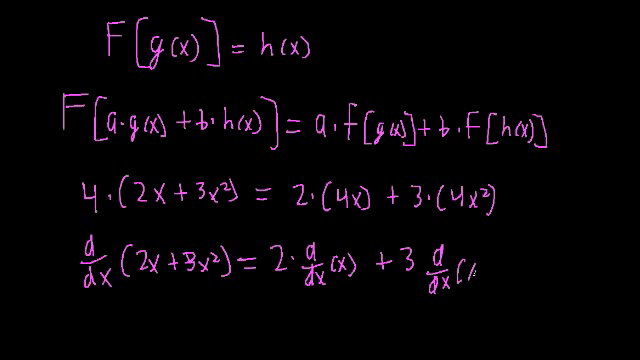 F[g(x)] = h(x)
F[a·g(x) + b·h(x)] = a·f[g(x)] + b·F[h(x)]
4·(2x + 3x²) = 2·(4x) + 3·(4x²)
d/dx (2x + 3x²) = 2·d/dx (x) + 3 d/dx (